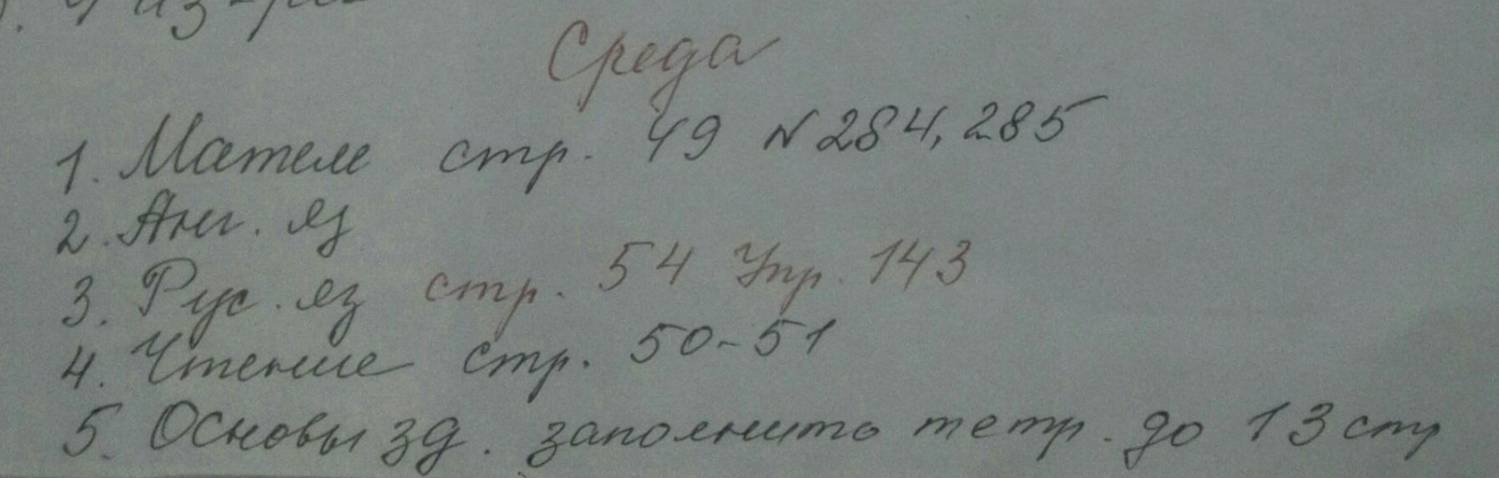 Среда
1. Матем стр. 49 N 284, 285
2. Анг. яз
3. Рус. яз стр. 54 Упр. 143
4. Чтение стр. 50-51
5. Основы зд. заполнить тетр. до 13 стр